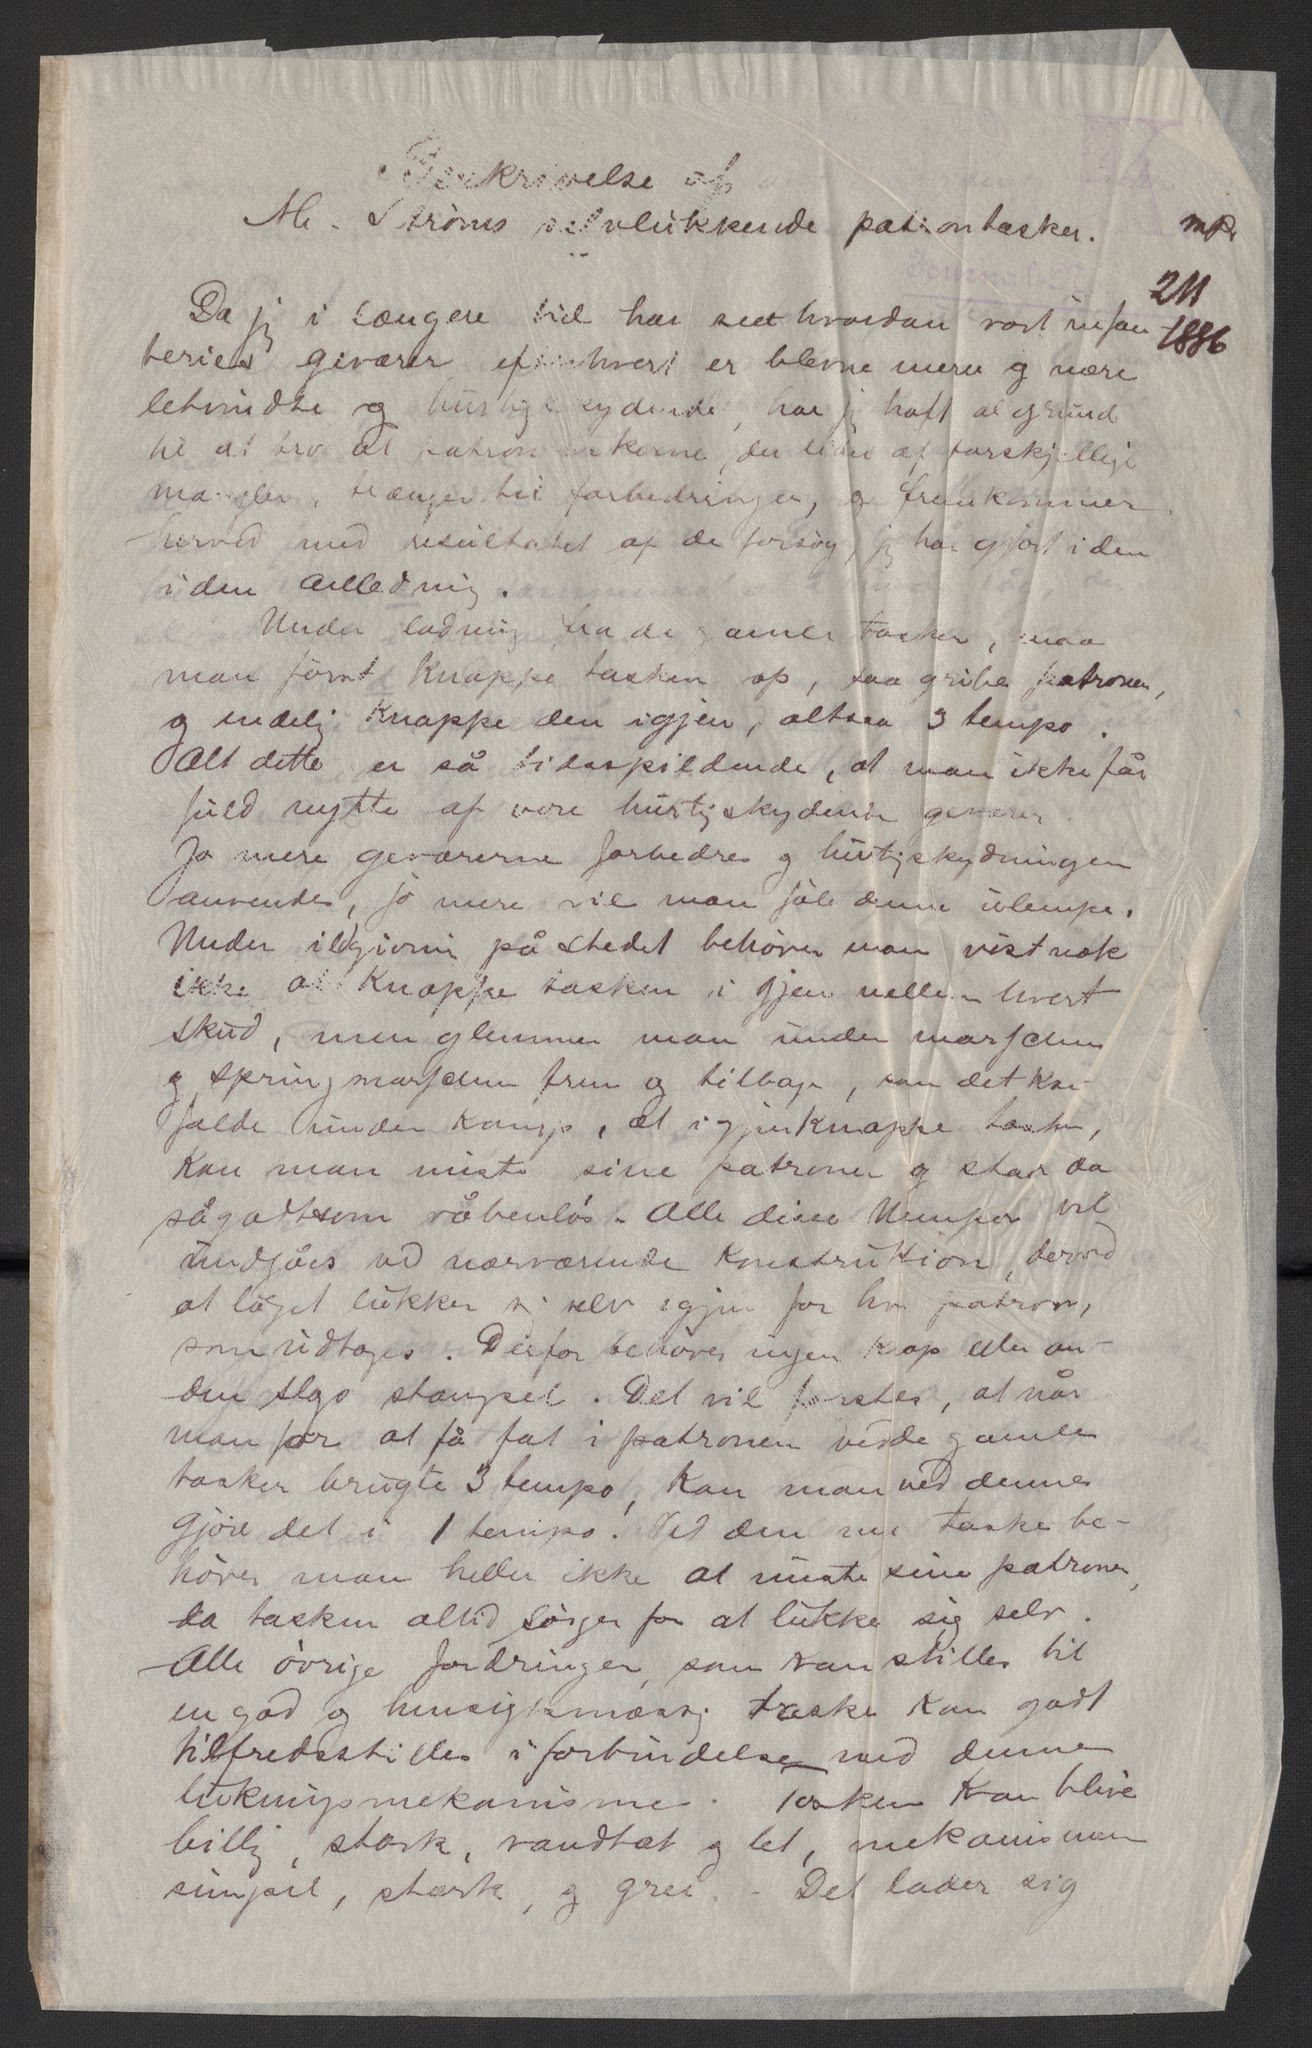 Beskrivelse af
M. Ströms selvlukkende patrontasker.
mP.
Journal
211
1886
Da jeg i længere tid har seet hvordan vort infan-
teries geværer efterhvert er blevne mere og mere
letvindte og hurtigskydende, har jeg haft al grund
til at tro at patrontaskerne, der lider af forskjellige
mangler, trænger til forbedringer, og fremkommer
herved med resultatet af de forsøg, jeg har gjort i den
i den anledning.
Under ladning fra de gamle tasker, maa
man först knappe tasken op, saa gribe patronen,
og endelig knappe den igjen, altsaa 3 tempo.
Alt dette er så tidsspildende, at man ikke får
fuld nytte af vore hurtigskydende geværer.
Jo mere geværerne forbedres og hurtigskydningen
anvendes, jo mere vil man föle denne ulempe.
Under ildgivni på stedet behöver man vistnok
ikke at knappe tasken i gjen mellem hvert
skud, men glemmer man under marschen
og springmarschen frem og tilbage, som det kan
falde under kamp, at igjenknappe tasken,
kan man miste sine patroner og staar da
sågodtsom våbenlös. Alle disse Ulemper vil
undgåes ved nærværende konstruktion, derved
at låget lukker sig selv igjen for hver patron,
som udtages. Derfor behöves ingen knap eller an-
den slags stængsel. Det vil forståes, at når
man för at få fat i patronen ved de gamle
tasker brugte 3 tempo, kan man ved denne
gjöre det i 1 tempo. Ved den nye taske be-
höver man heller ikke at miste sine patroner,
da tasken altid sörger for at lukke sig selv.
Alle övrige fordringer, som kan stilles til
en god og hensigtsmæssig taske kan godt
tilfredsstilles i forbindelse med denne
lukningsmekanisme. Tasken kan blive
billig, stærk, vandtæt og let, mekanismen
simpel, stærk, og grei. - Det lader sig